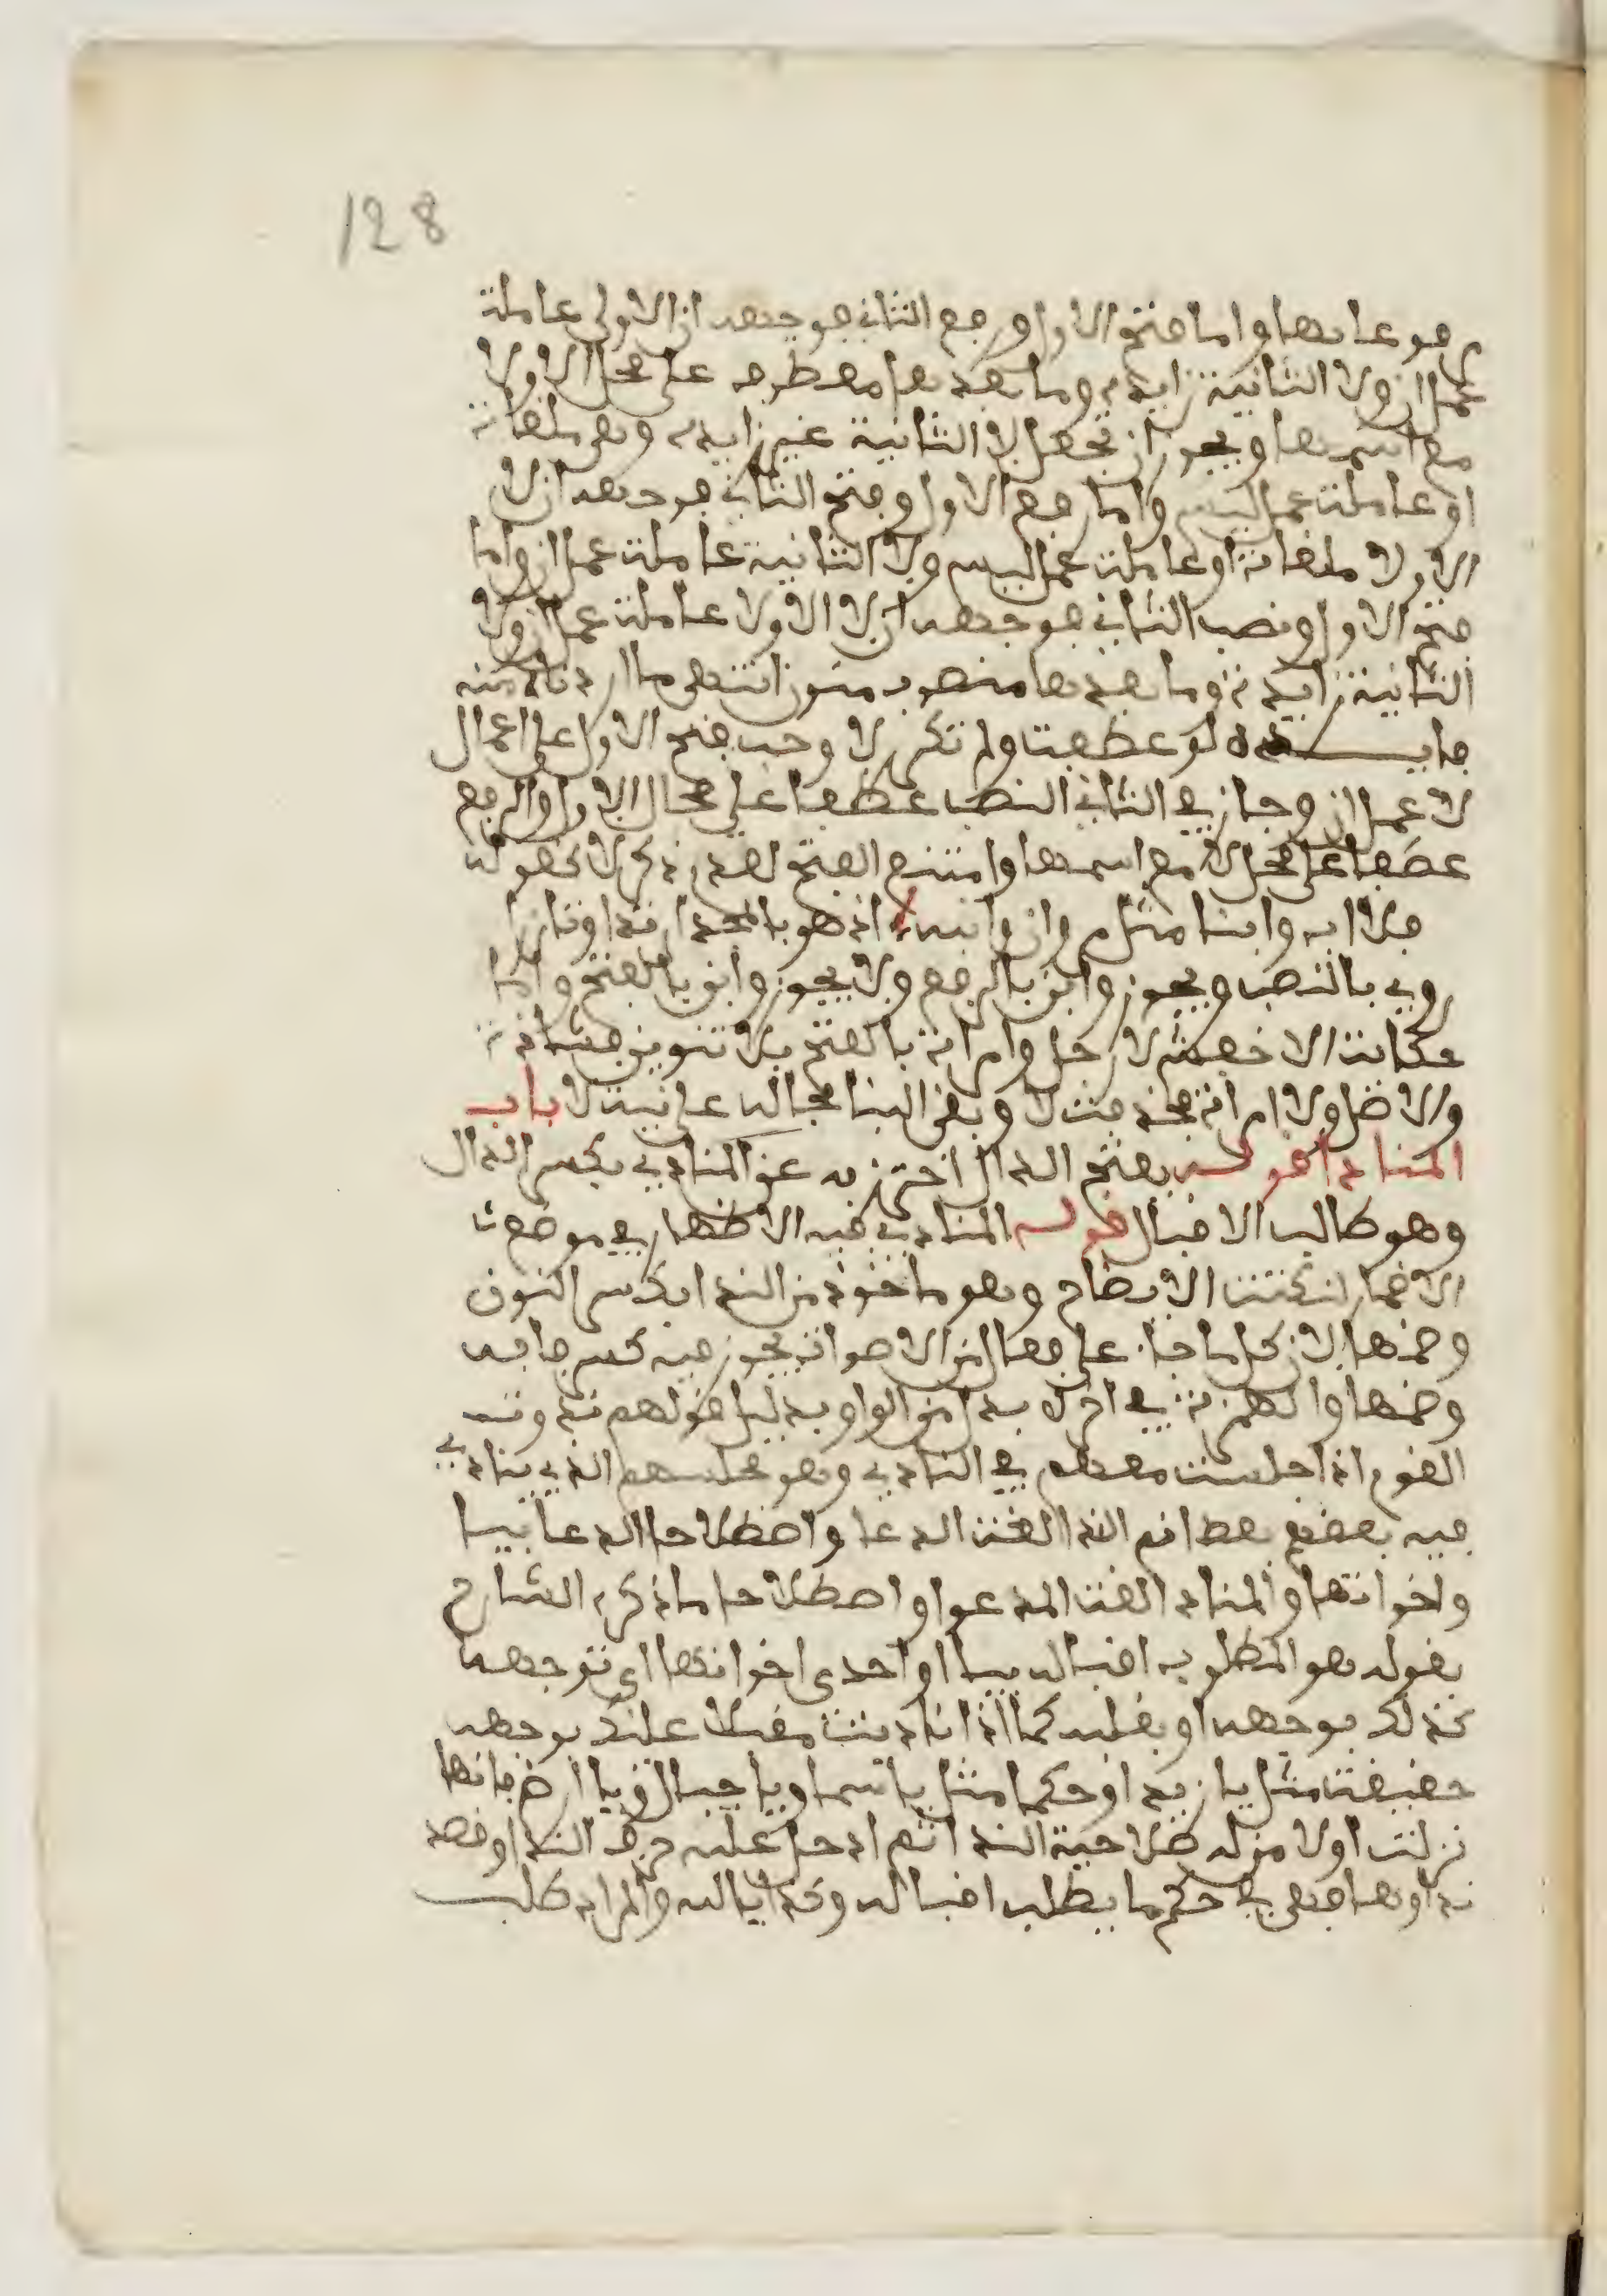 128
مرفوعا بها واما فتح الاول ورفع الثاني فوجهه ان الاولى عاملة
عمل ان ولا الثانية زايدة وما بعدها معطوف على محل الاولا
مع اسمها ويجوز ان تجعل لا الثانية غير زايدة وهي ملغاة
او عاملة عمل ليس واما رفع الاول وفتح الثاني فوجهه ان لا
الاولا ملغاة او عاملة عمل ليس ولا الثانية عاملة عمل ان واما
فتح الاول ونصب الثاني فوجهه ان لا الاولا عاملة عمل ان ولا
الثانية زايدة وما بعدها منصوب منون انتهى ما اردناه منه
فايدة لو عطفت ولم تكرر لا وجب فتح الاول على اعمال
لا عمل ان وجاز في الثاني النصب عطفا على محال الاول والرفع
عطفا على محل لا مع اسمها وامتنع الفتح لعدم ذكر لا كقوله
فلا اب وابنا مثل مروان وابنه اذ هو بالمجد ارتدا وتازرا
روي بالنصب ويجوز وابن بالرفع ولا يجوز وابن بالفتح واما
حكاية الاخفش لا رجل وامراة بالفتح بلا تنوين فشاذة
والاصل ولا امراة فحذفت لا وبقى البنا بحاله على نية لا باب
المنادا قوله بفتح الدال احترز به عن المنادي بكسر الدال
وهو طالب الاقبال قوله المنادي فيه الاظهار في موضع
الاضمار لنكتة الايضاح وهو ماخوذ من الندا بكسر النون
وضمها لان كل ما جا على فعال من الاصوات يجوز فيه كسر فايه
وضمها والهمزة في اخره بدل من الواو بدليل قولهم ندوت
القوم اذا جلست معهم في النادي وهو مجلسهم الذي ينادي
فيه بعضهم بعضا ثم الندا لغة الدعا واصطلاحا الدعا بيا
واخواتها والمنادا لغة المدعو واصطلاحا ما ذكره الشارح
بقوله هو المطلوب اقباله بيا او احدى اخواتها اي توجهه
كذلك بوجهه او بقلبه كما اذا ناديت مقبلا عليك بوجهه
حقيقة مثل يا زيد او حكما مثل يا سما ويا جبال ويا ارض فانها
نزلت اولا منزله صلاحية الندا ثم ادخل عليه حرف الندا وقصد
نداوها فهي في حكم ما يطلب اقباله وكذا يا الله والمراد طلب